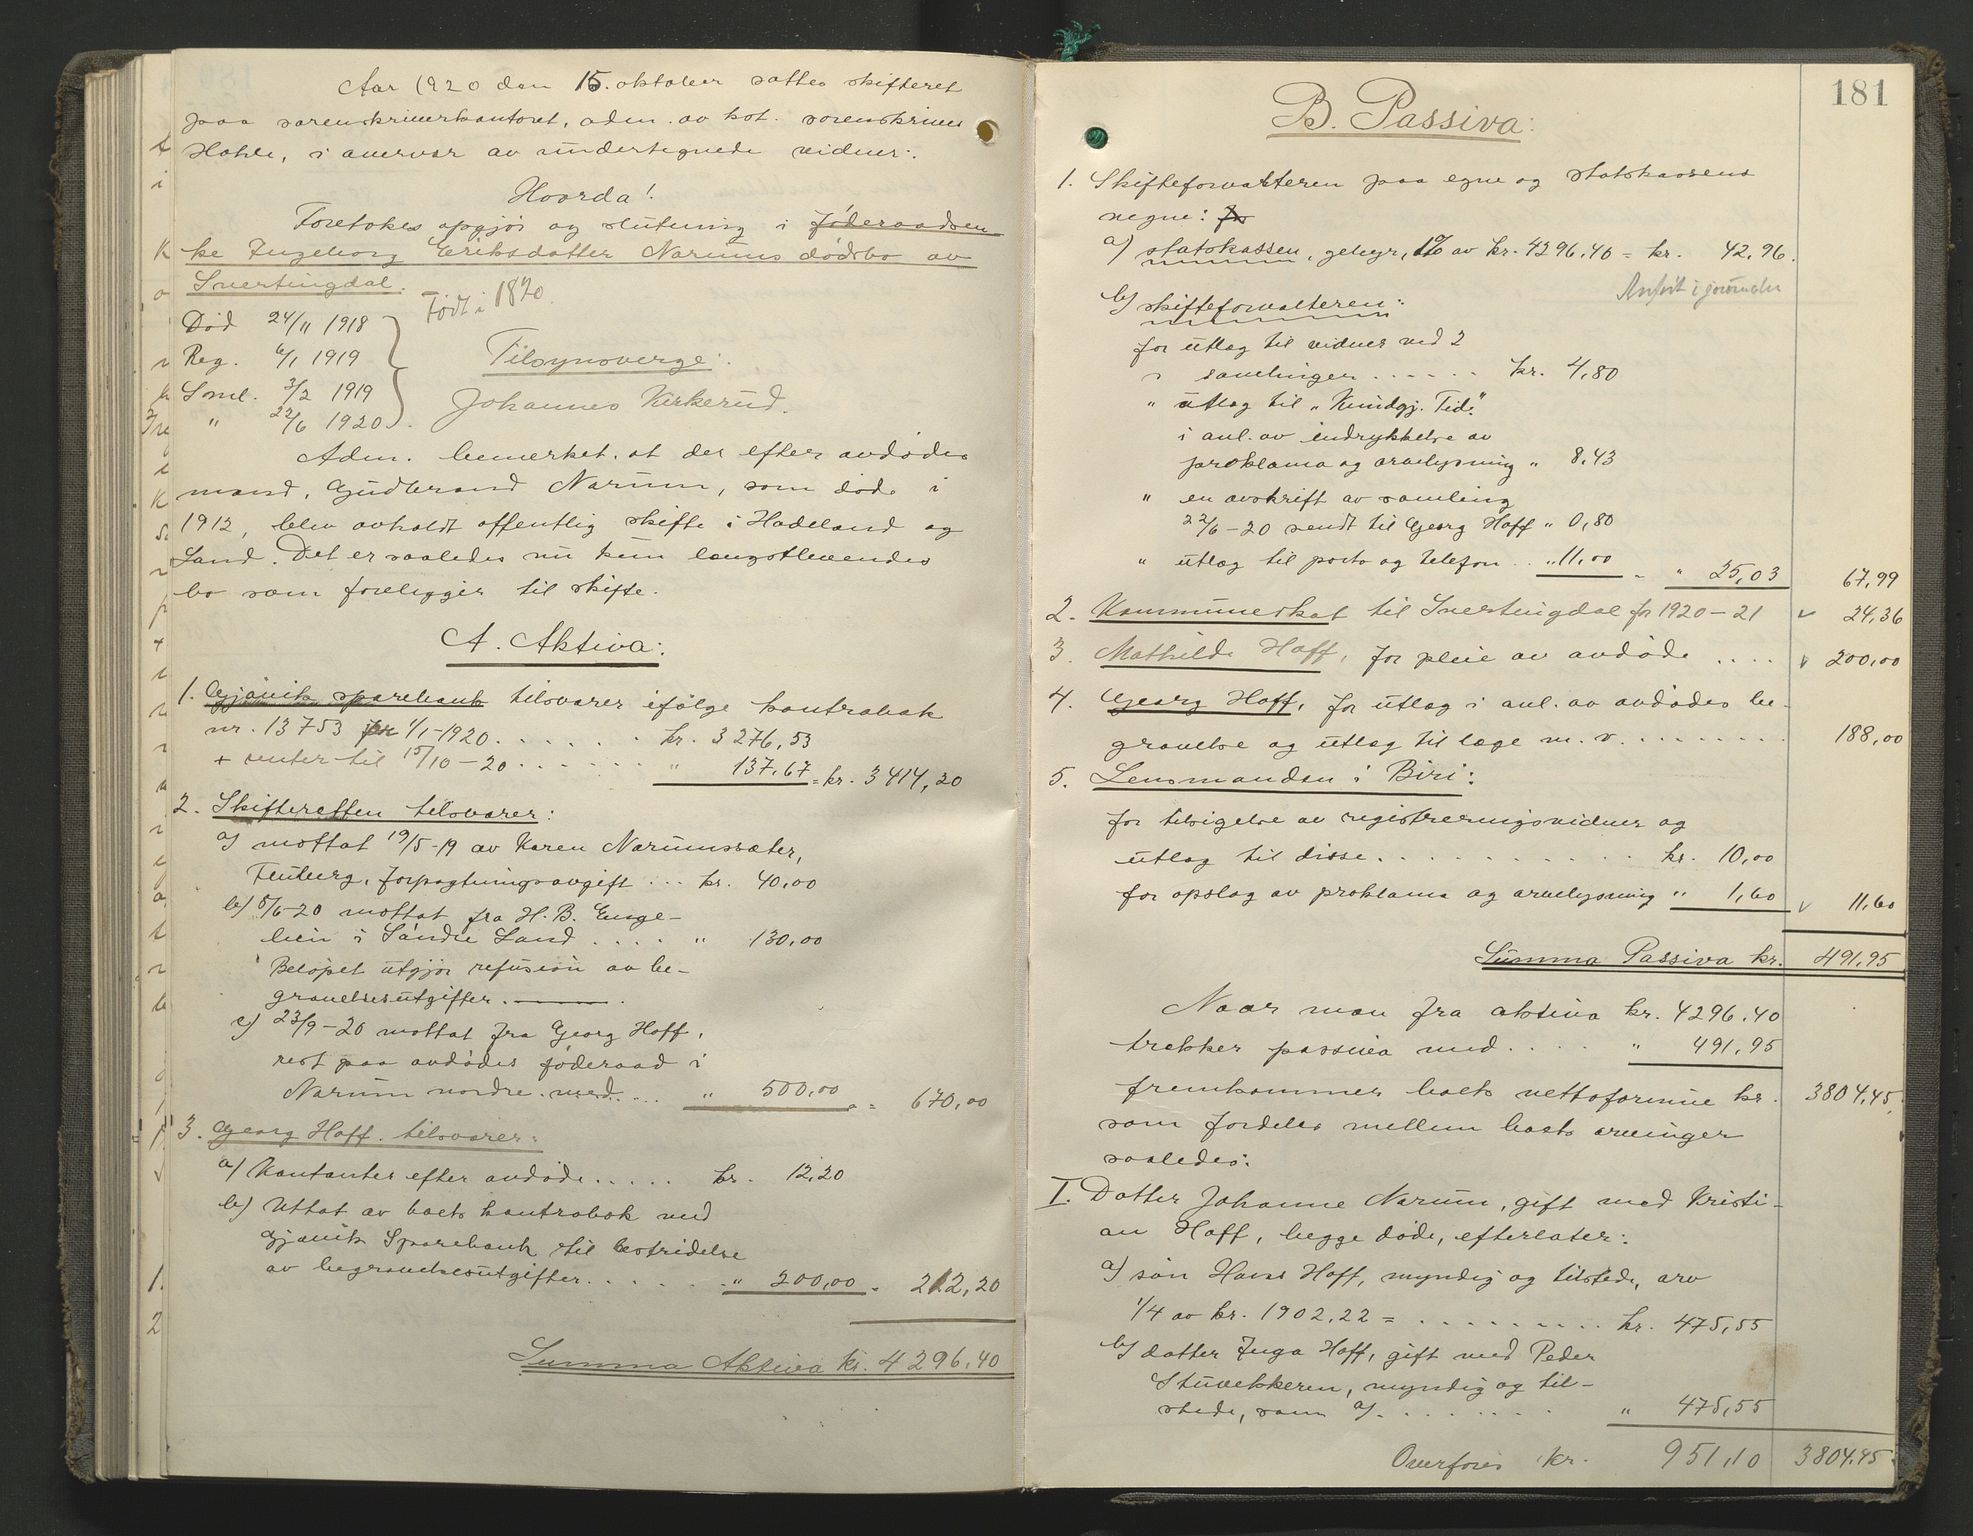 Aar 1920 den 15. oktober sattes skifteret
paa sorenskriverkontoret, adm. av kst. sorenskriver
Hohle, i overvær av undertegnede vidner:
Hvorda!
Foretokes opgjør og slutning i føderaadsen-
ke Ingeborg Eriksdatter Narums dødsbo av
Snertingdal.
Født i 1820.
Død 24/11 1918
Reg. 6/1 1919
Saml. 3/2 1919
" 22/6 1920
Tilsynsverge:
Johannes Kirkerud.
Adm. bemerket, at der efter avdødes
mand, Gudbrand Narum, som døde i
1912, blev avholdt offentlig skifte i Hadeland og
Land. Det er saaledes nu kun længstlevendes
bo som foreligger til skifte.
A. Aktiva:
1. Gjøvik sparebank tilsvarer ifølge kontrabok
nr. 13753 pr 1/1-1920 . . . . . . kr. 3276,53
+ renter til 15/10-20 . . . . . . " 137,67 = kr. 3414,20
2. Skifteretten tilsvarer:
a) mottat 19/5-19 av Karen Narumssæter,
Fluberg, forpagtningsavgift ... kr. 40,00
b) 5/6-20 mottat fra H. B. Enge-
lien i Søndre Land . . . . " 130,00
Beløpet utgjør refusion av be-
gravelsesutgifter.
c) 23/9-20 mottat fra Georg Hoff,
rest paa avdødes føderaad i
Narum nordre. med.... " 500,00 = 670,00
3. Georg Hoff. tilsvarer:
a) Kontanter efter avdøde ..... kr. 12,20
b) Uttat av boets kontrabok med
Gjøvik Sparebank til bestridelse
av begravelsesutgifter. . . . . . " 200,00 = 212,20
Summa Aktiva kr. 4296,40
181
B. Passiva:
1. Skifteforvalteren paa egne og statskassens
vegne: for
a) statskassen, gebyr, 1% av kr. 4296,40 = kr. 42,96.
Anført i journalen
b) skifteforvalteren:
for utlæg til vidner ved 2
samlinger . . . . . . kr. 4,80
" utlæg til "Kundgj. Tid."
i anl. av indrykkelse av
proklama og arvelysning " 8,43
" en avskrift av samling
22/6-20 sendt til Georg Hoff " 0,80
" utlæg til porto og telefon .. " 11,00 = " 25,03 67,99
2. Kommuneskat til Snertingdal for 1920-21 24,36
3. Mathilde Hoff, for pleie av avdøde .... 200,00
4. Georg Hoff, for utlæg i anl. av avdødes be-
gravelse og utlæg til læge m. v. . . . . . . . . 188,00
5. Lensmanden i Biri:
for tilsigelse av registreringsvidner og
utlæg til disse . . . . . . . . . . . kr. 10,00
for opslag av proklama og arvelysning " 1,60 11,60
Summa Passiva kr. 491,95
Naar man fra aktiva kr. 4296,40
trekker passiva med . . . . " 491,95
fremkommer boets nettoformue kr. 3804,45,
som fordeles mellem boets arvinger
saaledes:
I. Datter Johanne Narum, gift med Kristi-
an Hoff, begge døde, efterlater:
a) søn Hans Hoff, myndig og tilstede, arv
1/4 av kr. 1902,22 = . . . . . . . . . kr. 475,55
b) datter Inga Hoff, gift med Peder
Stuvekkeren, myndig og til-
stede, som a) . . . . . . . " 475,55
Overføres kr. 951,10 3804,45